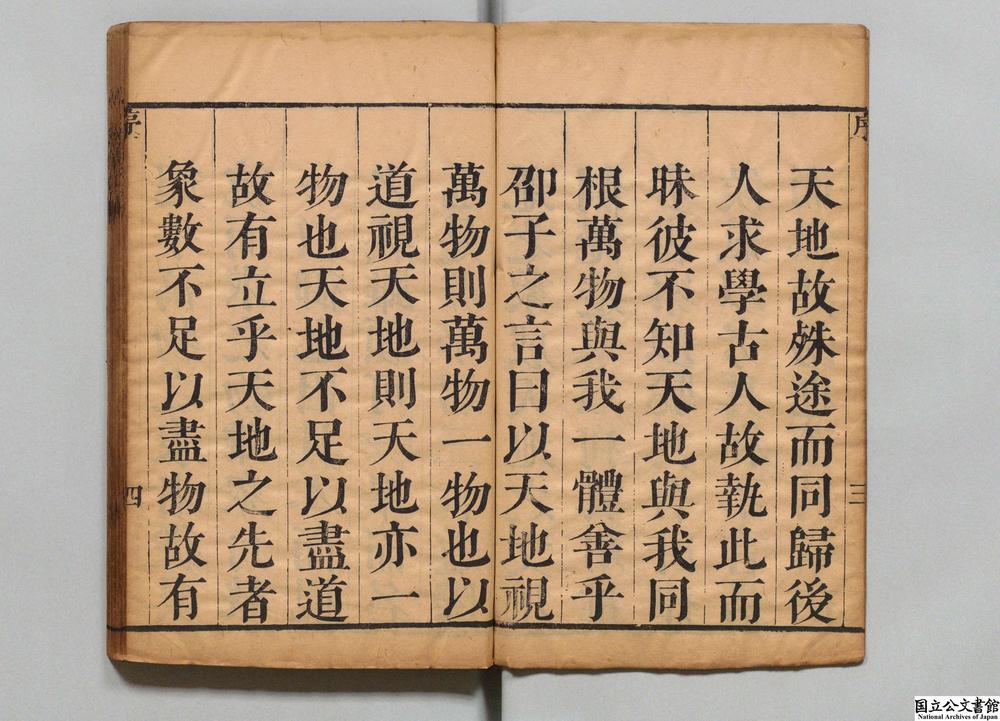 序
三
天地故殊途而同歸後
人求學古人故執此而
昧彼不知天地與我同
根萬物與我一體善乎
邵子之言曰以天地視
萬物則萬物一物也以
道視天地則天地亦一
物也天地不足以盡道
故有立乎天地之先者
象數不足以盡物故有
序
四
国立公文書館
National Archives of Japan